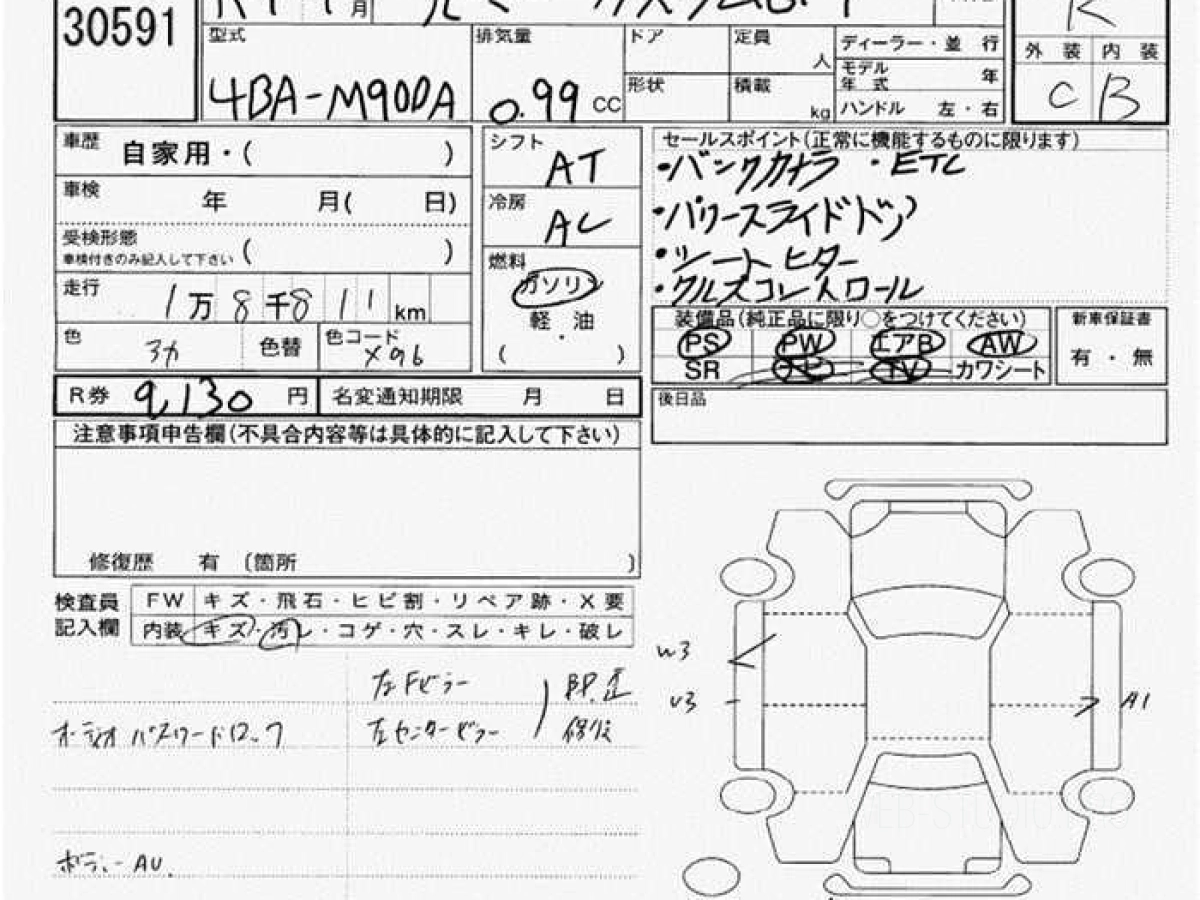 30591
月
型式 排気量 ドア 定員 人 ディーラー・並 行
4BA-M900A 0.99 CC 形状 積載 kg モデル年式 年
ハンドル 左・右
R
外装 内装
C B
車歴 自家用・( )
車検 年 月( 日)
受検形態 ( )
車検付きのみ記入して下さい
走行 1万8千811km
色 色替 色コード X96
シフト AT
冷房 AC
燃料 ガソリン
軽・油
( )
セールスポイント(正常に機能するものに限ります)
・バックカメラ ・ETC
・パワースライドドア
・シートヒーター
・クルーズコントロール
装備品(純正品に限り○をつけてください)
PS PW エアB AW
SR ナビ TV カワシート
新車保証書
有・無
R券 9,130円 名変通知期限 月 日
後日品
注意事項申告欄(不具合内容等は具体的に記入して下さい)
修復歴 有 〔箇所 )
検査員記入欄
FW キズ・飛石・ヒビ割・リペア跡・X要
内装 キズ・汚レ・コゲ・穴・スレ・キレ・破レ
左Fピラー
左センターピラー
オーディオ パスワードロック
ボディー AU.
W3
U3
A1